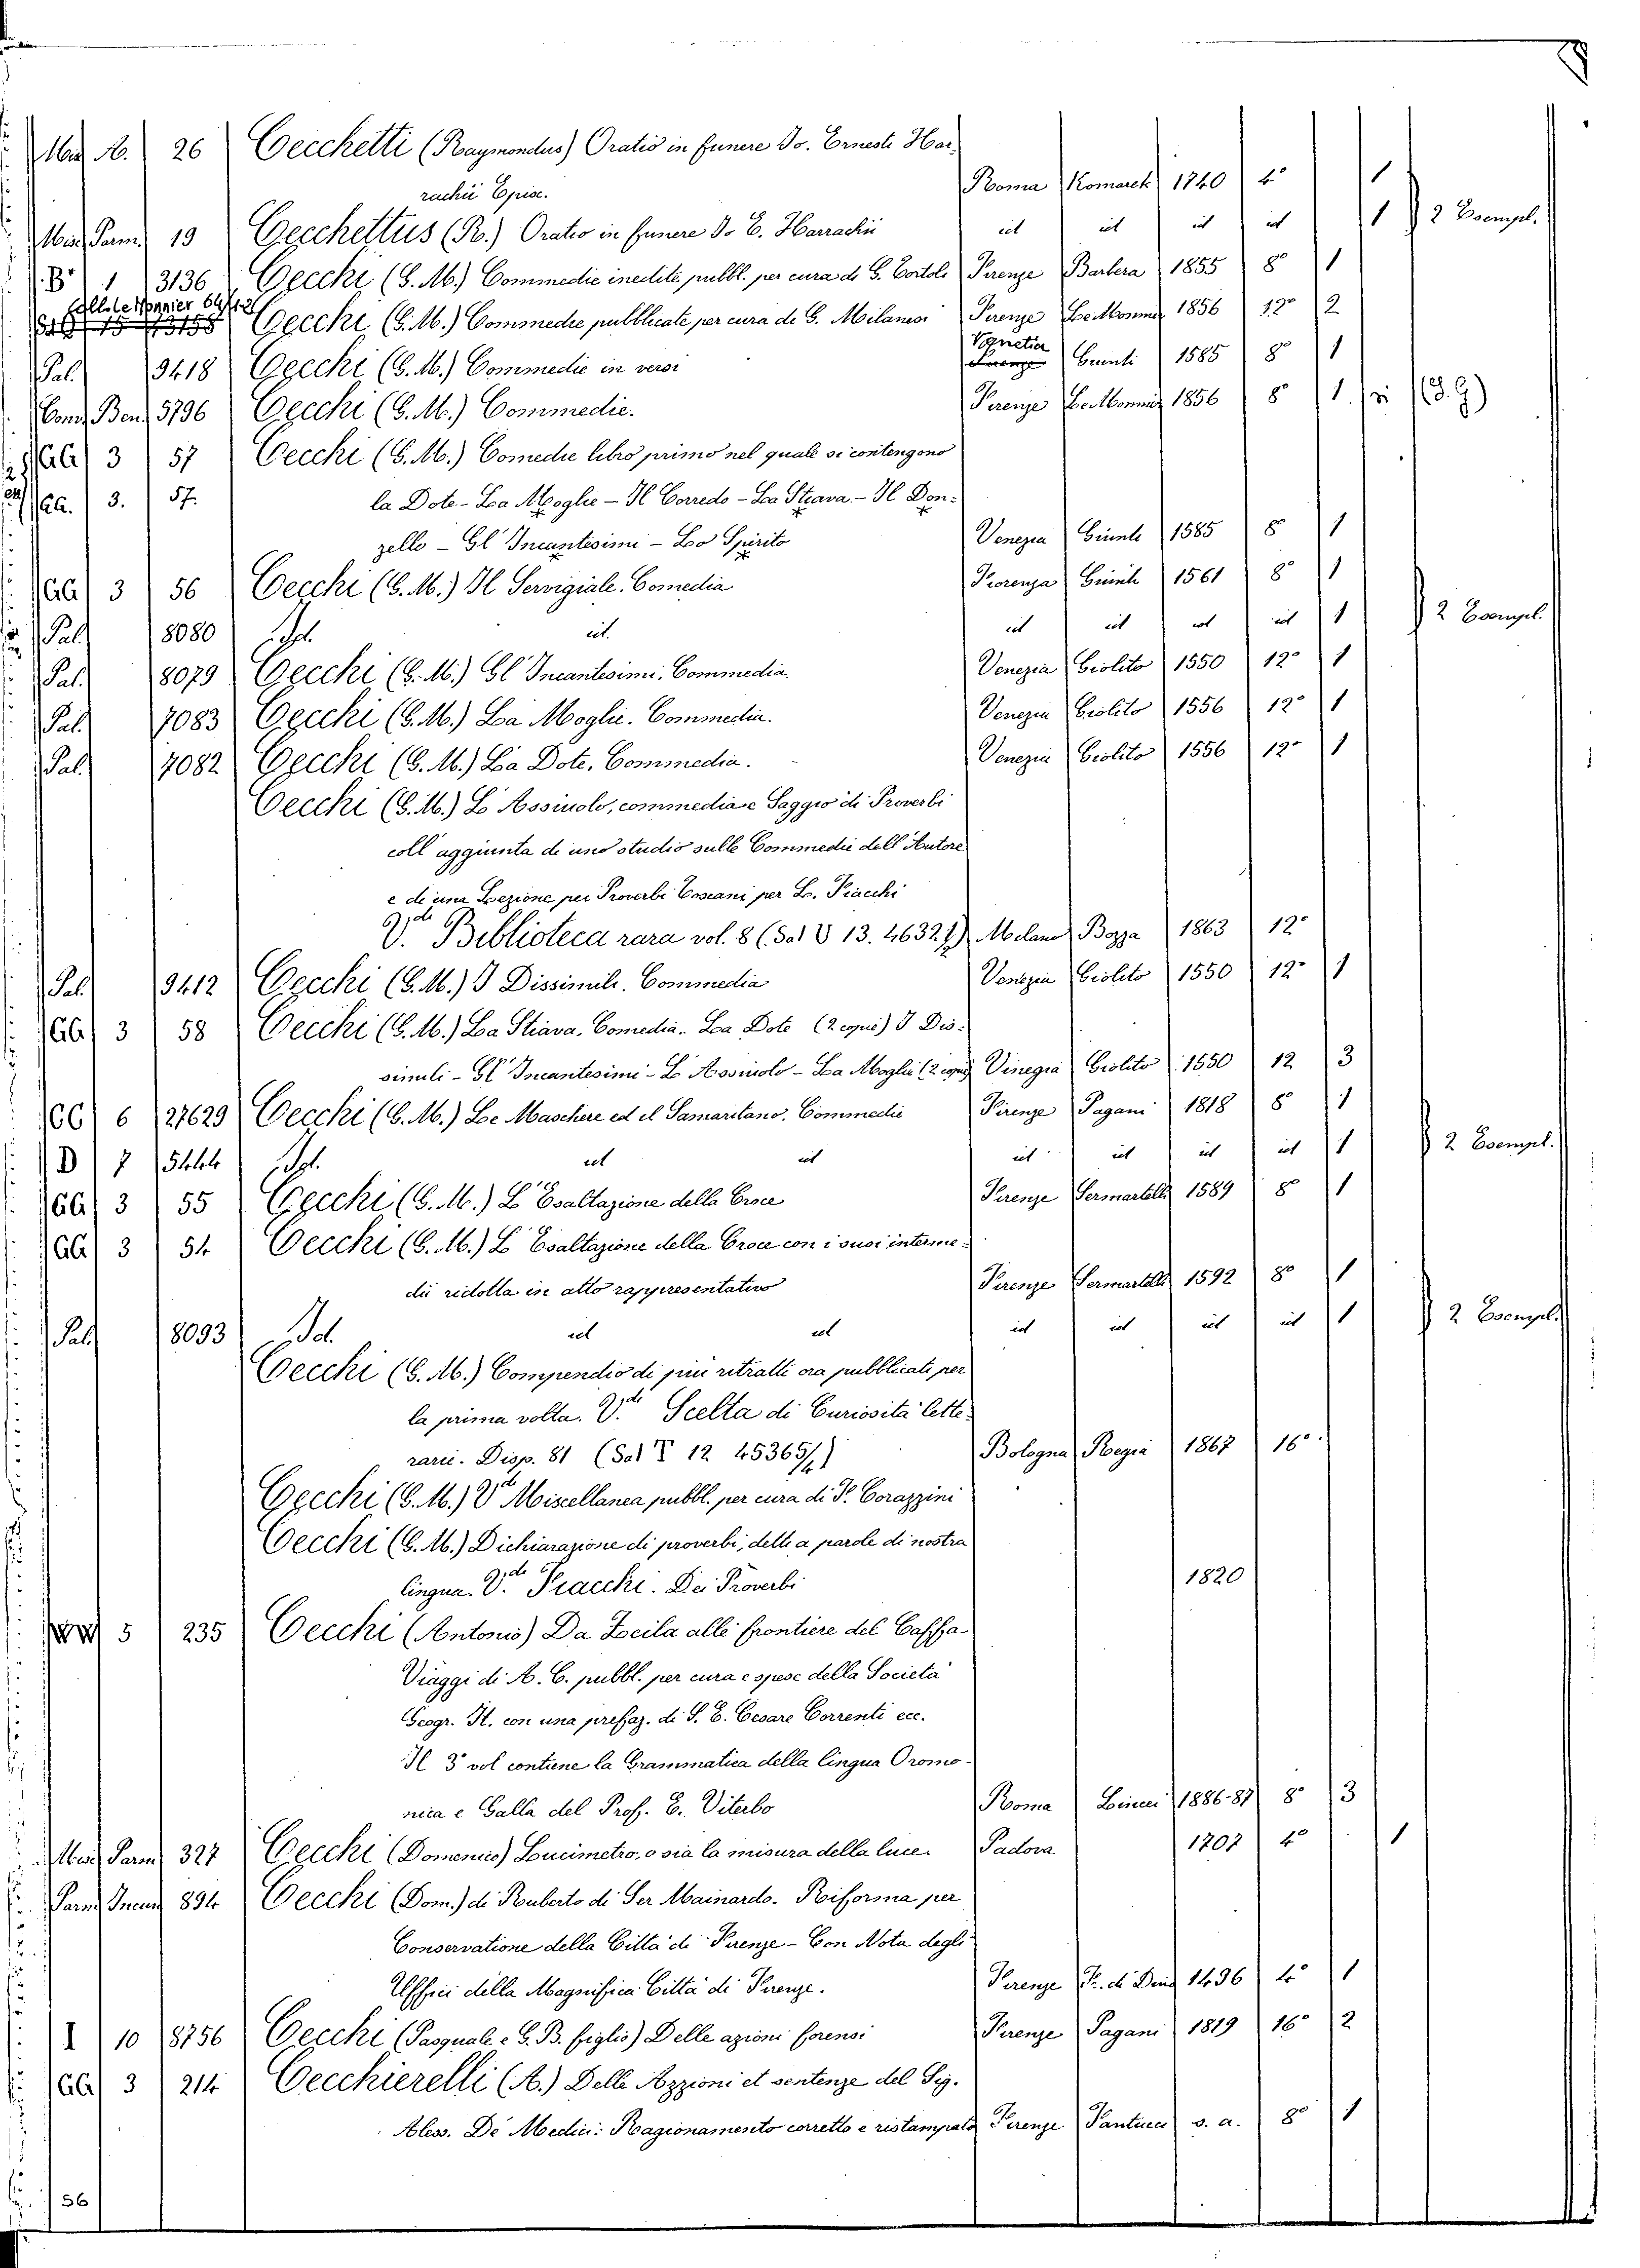 Misc. A. 26 Cecchetti (Raymondus) Oratio in funere Jo. Ernesti Har-
rachii Episc. Roma Komarek 1740 4° 1
Misc. Parm. 19 Cecchettus (R.) Oratio in funere Jo. E. Harrachii id id id id 1 2 Esempl.
B° 1 3136 Cecchi (G. M.) Commedie inedite, pubbl. per cura di G. Tortoli Firenze Barbera 1855 8° 1
Coll. Le Monnier 64/1.2
Cecchi (G. M.) Commedie pubblicate per cura di G. Milanesi Firenze Le Monnier 1856 12° 2
Pal. 9418 Cecchi (G. M.) Commedie in versi Venetia Firenze Giunti 1585 8° 1
Cons. Ben. 5796 Cecchi (G. M.) Commedie. Firenze Le Monnier 1856 8° 1
GG 3 57 Cecchi (G. M.) Comedie libro primo nel quale si contengono
GG. 3. 57. la Dote - La Moglie - Il Corredo - La Stiava - Il Don-
zello - Gl'Incantesimi - Lo Spirito Venezia Giunti 1585 8° 1
GG 3 56 Cecchi (G. M.) Il Servigiale. Comedia Fiorenza Giunti 1561 8° 1
Pal. 8080 Id. id. id id id id 1 2 Esempl.
Pal. 8079 Cecchi (G. M.) Gl'Incantesimi. Commedia. Venezia Giolito 1550 12° 1
Pal. 7083 Cecchi (G. M.) La Moglie. Commedia. Venezia Giolito 1556 12° 1
Pal. 7082 Cecchi (G. M.) La Dote. Commedia. Venezia Giolito 1556 12° 1
Cecchi (G. M.) L'Assiuolo, commedia e Saggio di Proverbi
coll'aggiunta di uno studio sulle Commedie dell'Autore
e di una Lezione pei Proverbi Toscani per L. Fiacchi
V.di Biblioteca rara vol. 8 (Sal V 13. 4632.7) Milano Bozza 1863 12°
Pal. 9412 Cecchi (G. M.) I Dissimili. Commedia Venezia Giolito 1550 12° 1
GG 3 58 Cecchi (G. M.) La Stiava. Comedia. La Dote (2 copie) I Dis-
simili - Gl'Incantesimi - L'Assiuolo - La Moglie (2 copie) Vinegia Giolito 1550 12 3
CC 6 27629 Cecchi (G. M.) Le Maschere ed il Samaritano. Commedie Firenze Pagani 1818 8° 1
D 7 5444 Id. id id id id id id 1 2 Esempl.
GG 3 55 Cecchi (G. M.) L'Esaltazione della Croce Firenze Sermartelli 1589 8° 1
GG 3 54 Cecchi (G. M.) L'Esaltazione della Croce con i suoi interme-
dii ridotta in atto rappresentativo Firenze Sermartelli 1592 8° 1
Pal. 8093 Id. id id id id id id 1 2 Esempl.
Cecchi (G. M.) Compendio di più ritratti ora pubblicati per
la prima volta. V.di Scelta di Curiosità lette-
rarie. Disp. 81 (Sal T 12 45365/4) Bologna Regia 1867 16°
Cecchi (G. M.) V.di Miscellanea pubbl. per cura di F. Corazzini
Cecchi (G. M.) Dichiarazione di proverbi, detti a parole di nostra
lingua. V.di Fiacchi. Dei Proverbi 1820
5 235 Cecchi (Antonio) Da Zeila alle frontiere del Caffa
Viaggi di A. C. pubbl. per cura e spese della Società
Geogr. It. con una prefaz. di S. E. Cesare Correnti ecc.
Il 3° vol contiene la Grammatica della lingua Oromo-
nica e Galla del Prof. E. Viterbo Roma Lincei 1886-87 8° 3
Misc. Parm. 327 Cecchi (Domenico) Lucimetro, o sia la misura della luce. Padova 1707 4° 1
Parm. Incun. 894 Cecchi (Dom.) di Ruberto di Ser Mainardo. Riforma per
Conservatione della Città di Firenze - Con Nota degli
Uffici della Magnifica Città di Firenze. Firenze Fr. di Dino 1496 4° 1
I 10 8756 Cecchi (Pasquale e G. B. figlio) Delle azioni forensi Firenze Pagani 1819 16° 2
GG 3 214 Cecchierelli (A.) Delle Azzioni et sentenze del Sig.
Aless. De Medici: Ragionamento corretto e ristampato Firenze Pantucci s. a. 8° 1
56